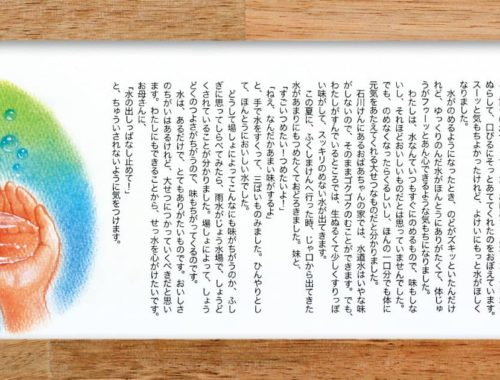 ぬらして、口びるにそっとあててくれたのをおぼえています。
スーッとして気もちよかったけれど、よけいにもっと水がほしく
なりました。
水がのめるようになったとき、のどがズキッといたんだけ
れど、ゆっくりのんだ水がほんとうにありがたくて、体じゅ
うがフゥーッとあんしんできるような気もちになりました。
わたしは、水なんていつもすぐにのめるもので、味もしな
いし、それほどおいしいものだとは思っていませんでした。
でも、のめなくなったらくるしいし、ほんの一口分でも体に
元気をあたえてくれる大せつなものだと分かりました。
石川けんにあるおばあちゃんの家では、水道水はいやな味
がしないので、そのままゴクゴクのむことができます。でも、
わたしがすんでいるところでは、生ぬるくて少しくすりっぽ
い味がして、スッキリのめない水が出てきます。
この夏に、ふくしまけんへ行った時、じゃ口から出てきた
水があまりにもつめたくておどろきました。妹と、
「すごいつめたい！つめたいよ！」
「ねえ、なんだかあまい味がするよ」
と、手で水をすくって、三ばいものみました。ひんやりとし
て、ほんとうにおいしい水でした。
どうして場しょによってこんなにも味がちがうのか、ふし
ぎに思ってしらべてみたら、雨水がじょう水場で、しょうど
くされていることが分かりました。場しょによって、しょう
どくのつよさがちがうので、味もちがってくるのです。
水は、あるだけで、とてもありがたいものです。おいしさ
のちがいはあるけれど、大せつにつかっていくべきだと思い
ます。わたしにもできることから、せっ水を心がけたいです。
お母さんに、
「水の出しっぱなし止めて！」
と、ちゅういされないように気をつけます。